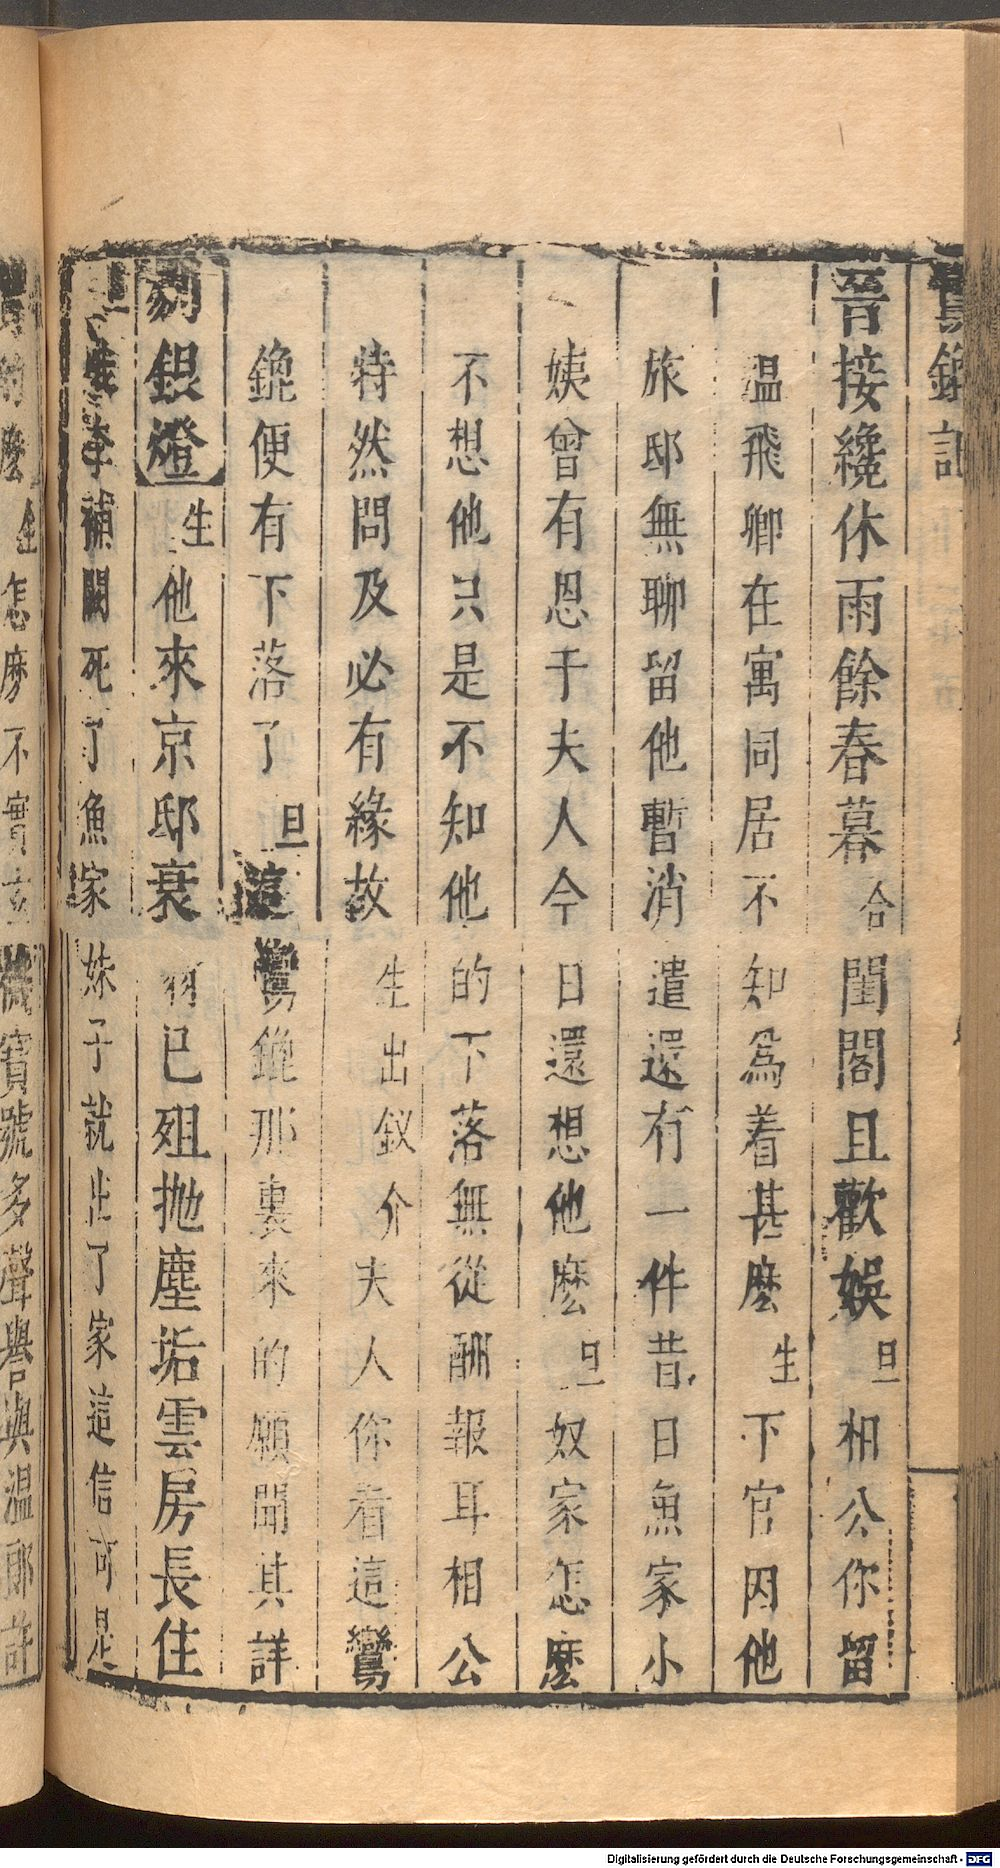 鎞記
晉接纔休雨餘春暮合閨閣且歡娛旦相公你留
溫飛卿在寓同居不知為着甚麽生下官因他
旅邸無聊留他暫消遣還有一件昔日魚家小
姨曾有恩于夫人今日還想他麽旦奴家怎麽
不想他只是不知他的下落無從酬報耳相公
特然問及必有緣故生出釵介夫人你看這鸞
鎞便有下落了旦這鸞鎞那裏來的願聞其詳
剔銀燈生他來京邸衰羽已殂拋塵垢雲房長住
李補闕死了魚家妹子就出了家這信可是
的麽生怎麽不實
寶號多聲譽與溫郎許
Digitalisierung gefördert durch die Deutsche Forschungsgemeinschaft - DFG